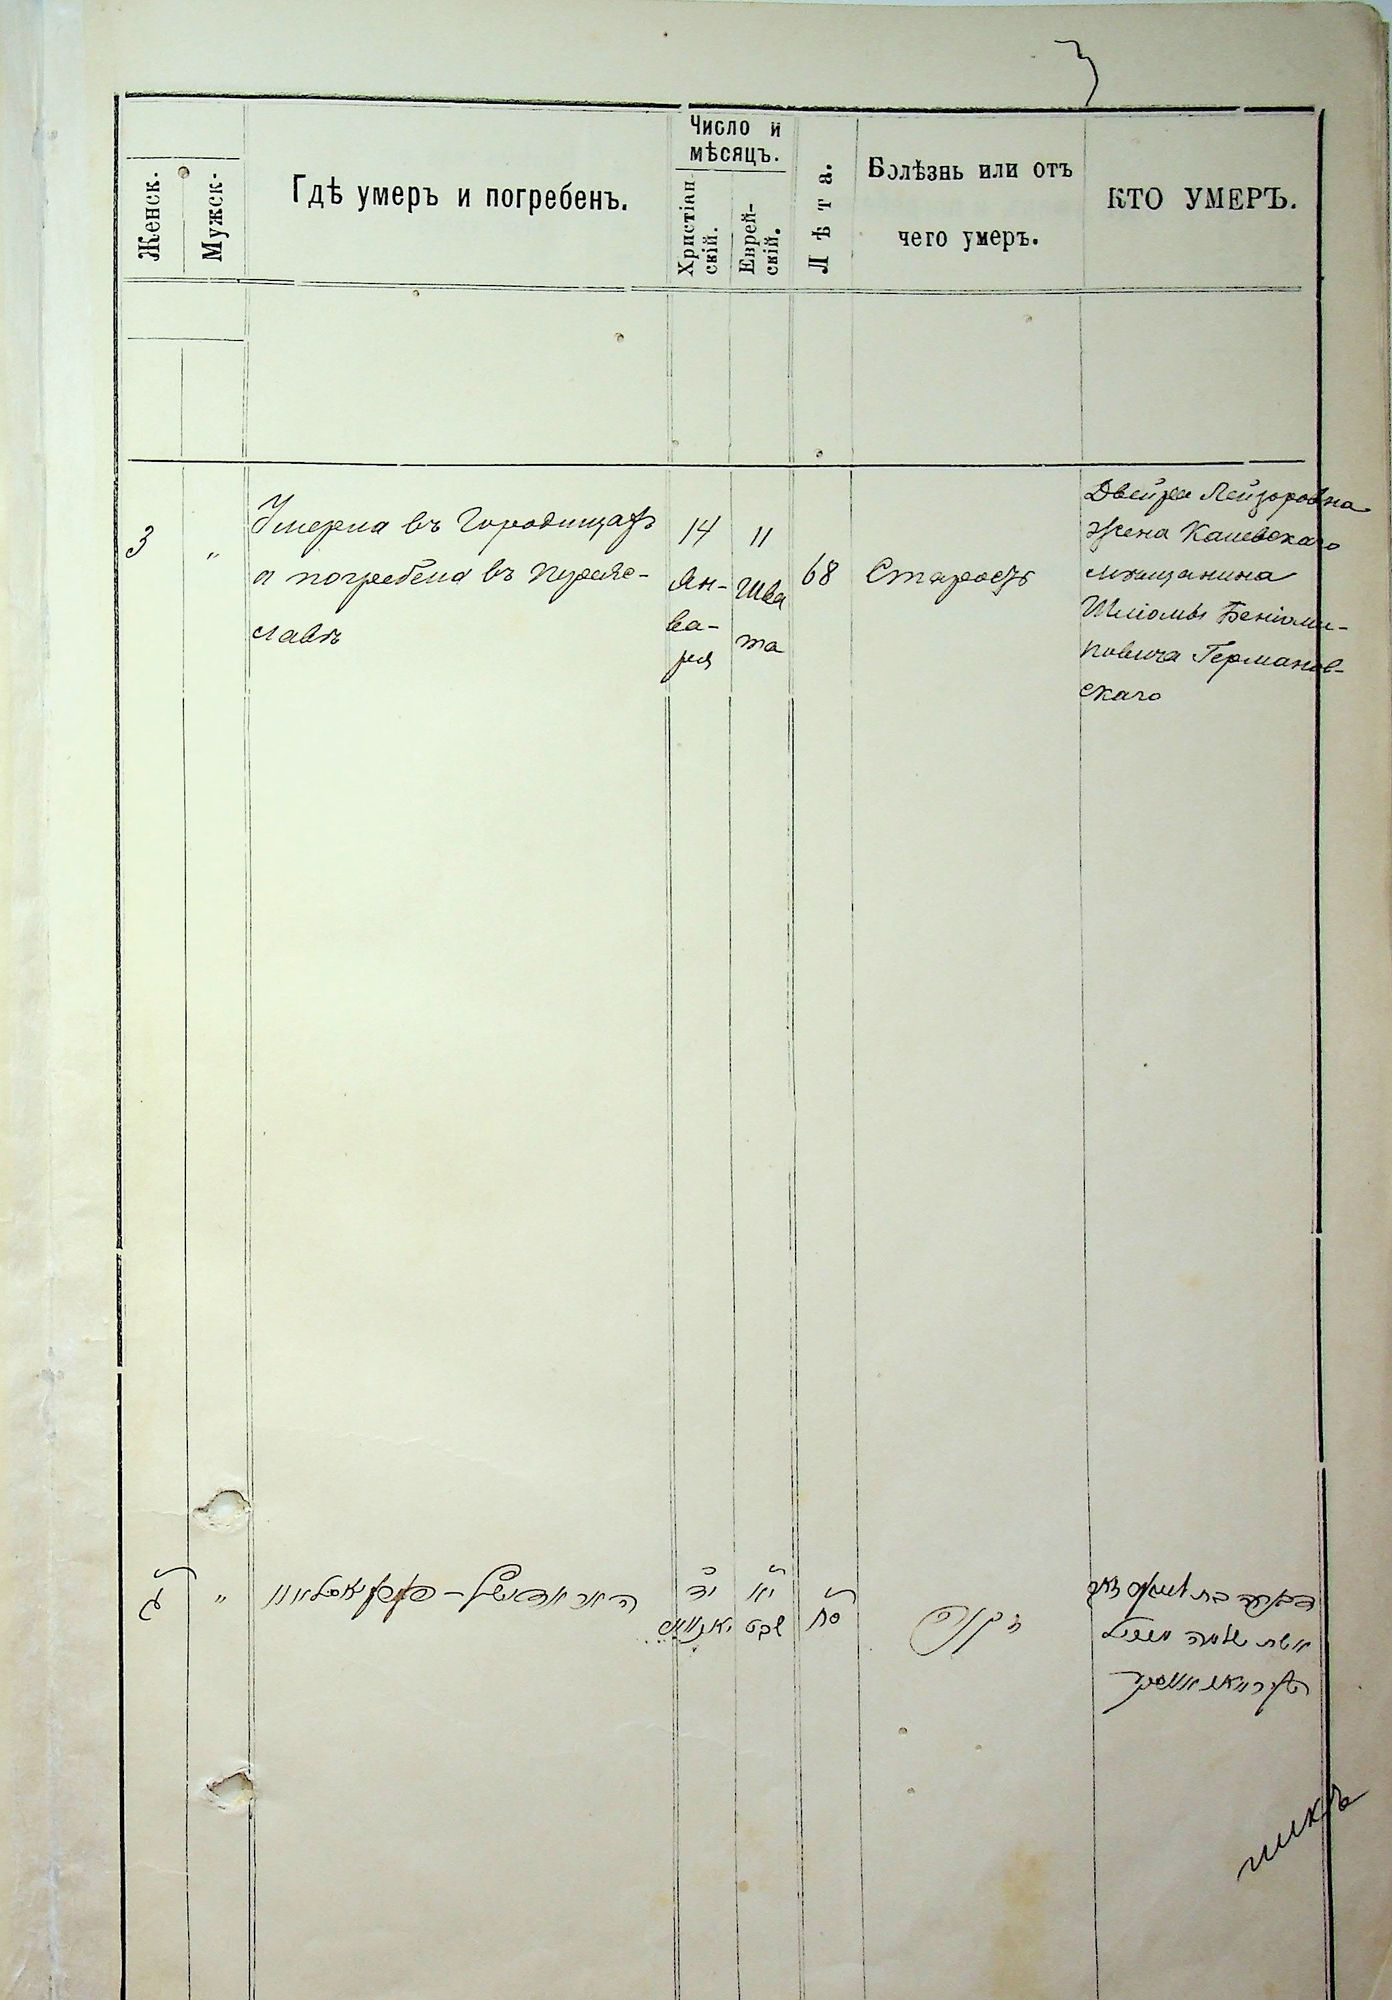 3
Женск.
Мужск.
Гдѣ умеръ и погребенъ.
Число и
мѣсяцъ.
Христіан-
скій.
Еврей-
скій.
Лѣта.
Болѣзнь или отъ
чего умеръ.
КТО УМЕРЪ.
3
"
Умерла въ Городищахъ
и погребена въ Переяс-
лавѣ
14
Ян-
ва-
ря
11
Шва
та
68
Старость
Двейра Лейзоровна
жена Каневскаго
мѣщанина
Шліомы Беніоми-
новича Германов-
скаго
ג
"
יד
יאנואר
יא
שבט
סח
זקנה
דבירה בת
אשת שלמה